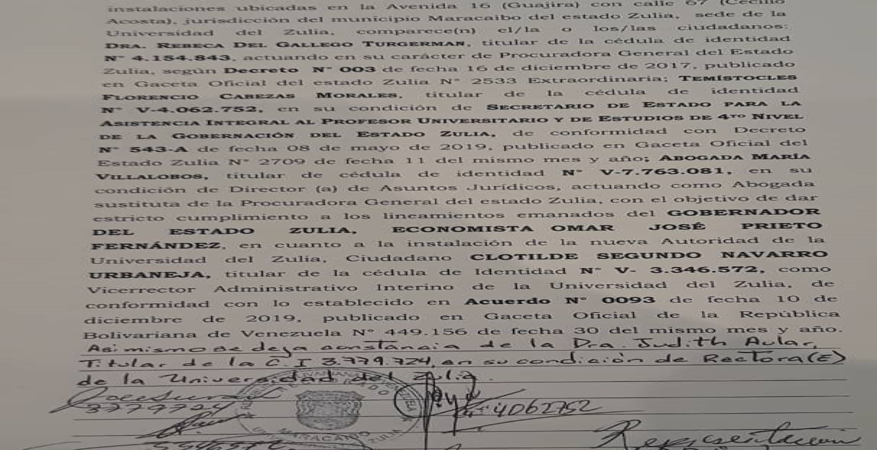 instalaciones ubicadas en la Avenida 16 (Guajira) con calle 67 (Cecilio
Acosta), jurisdicción del municipio Maracaibo del estado Zulia, sede de la
Universidad del Zulia, comparece(n) el/la o los/las ciudadanos:
DRA. REBECA DEL GALLEGO TURGERMAN, titular de la cédula de identidad
N° 4.154.843, actuando en su carácter de Procuradora General del Estado
Zulia, según Decreto N° 003 de fecha 16 de diciembre de 2017, publicado
en Gaceta Oficial del estado Zulia N° 2533 Extraordinaria; TEMÍSTOCLES
FLORENCIO CABEZAS MORALES, titular de la cédula de identidad
N° V-4.062.752, en su condición de SECRETARIO DE ESTADO PARA LA
ASISTENCIA INTEGRAL AL PROFESOR UNIVERSITARIO Y DE ESTUDIOS DE 4TO NIVEL
DE LA GOBERNACIÓN DEL ESTADO ZULIA, de conformidad con Decreto
N° 543-A de fecha 08 de mayo de 2019, publicado en Gaceta Oficial del
Estado Zulia N° 2709 de fecha 11 del mismo mes y año; ABOGADA MARÍA
VILLALOBOS, titular de cédula de identidad N° V-7.763.081, en su
condición de Director (a) de Asuntos Jurídicos, actuando como Abogada
sustituta de la Procuradora General del estado Zulia, con el objetivo de dar
estricto cumplimiento a los lineamientos emanados del GOBERNADOR
DEL ESTADO ZULIA, ECONOMISTA OMAR JOSÉ PRIETO
FERNÁNDEZ, en cuanto a la instalación de la nueva Autoridad de la
Universidad del Zulia, Ciudadano CLOTILDE SEGUNDO NAVARRO
URBANEJA, titular de la cédula de Identidad N° V- 3.346.572, como
Vicerrector Administrativo Interino de la Universidad del Zulia, de
conformidad con lo establecido en Acuerdo N° 0093 de fecha 10 de
diciembre de 2019, publicado en Gaceta Oficial de la República
Bolivariana de Venezuela N° 449.156 de fecha 30 del mismo mes y año.
Asimismo se deja constancia de la Dra. Judith Aular,
Titular de la C I 3.779.724, en su condición de Rectora(E)
de la Universidad del Zulia.
3779724
4062752
Representación